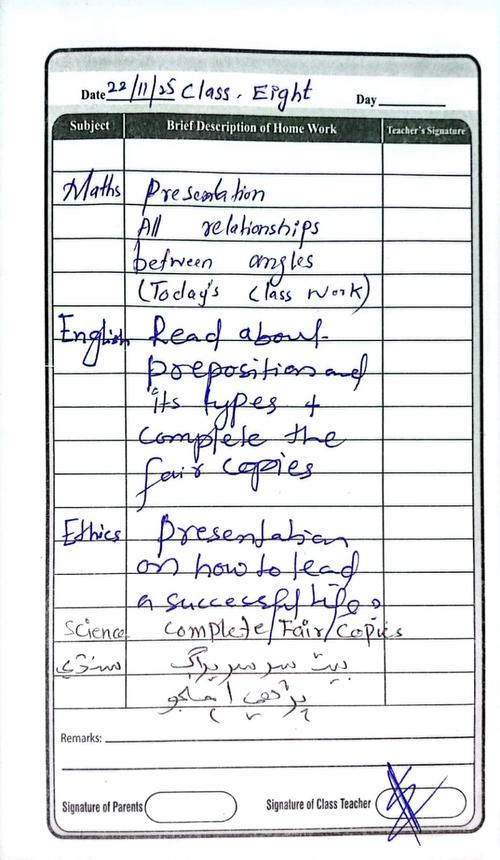 Date 22/11/25 Class. Eight Day
Subject Brief Description of Home Work Teacher's Signature
Maths Presentation
All relationships
between angles
(Today's Class Work)
English Read about
preposition and
its types +
complete the
fair copies
Ethics Presentation
on how to lead
a successful life.
Science Complete/Fair/Copies
سنڌي بيت سر سريراڳ
پڙهي اچجو
Remarks:
Signature of Parents Signature of Class Teacher